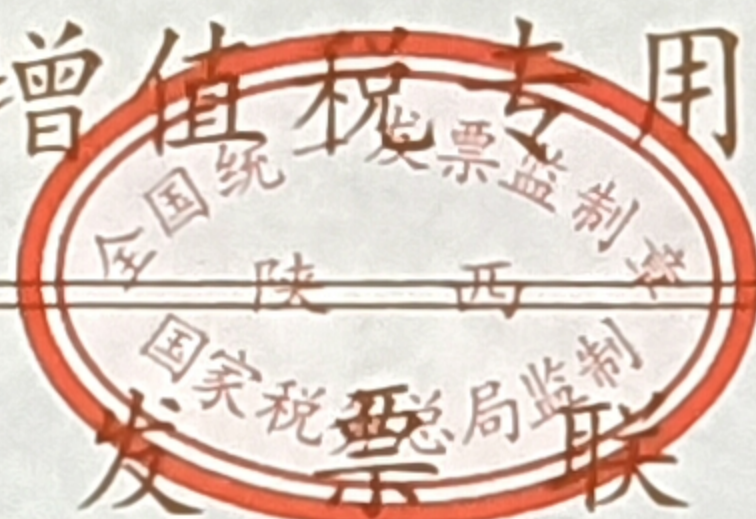 增值税专用
全国统一发票监制章
陕西
国家税务总局监制
发票联